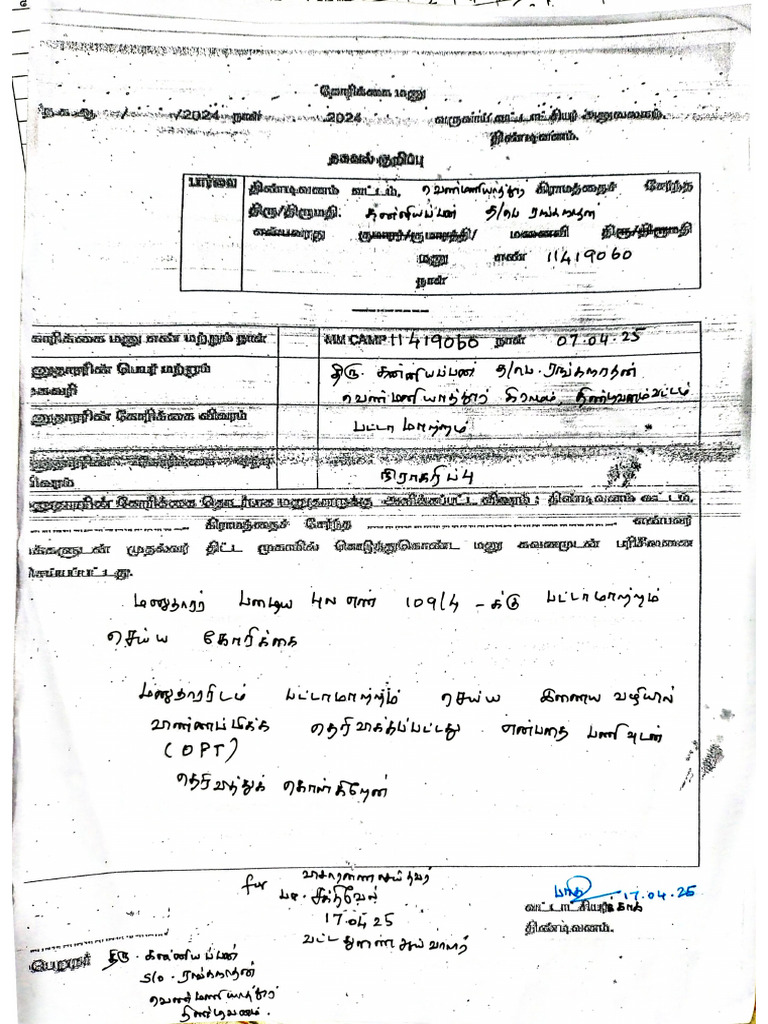 கோரிக்கை மனு
/2024 நாள் .2024 வருவாய் வட்டாட்சியர் அலுவலகம்,
திண்டிவனம்.
தகவல் குறிப்பு
பார்வை திண்டிவனம் வட்டம், வெண்மணியாத்தூர் கிராமத்தைச் சேர்ந்த
திரு/திருமதி. கன்னியப்பன் த/பெ ரங்கநாதன்
என்பவரது குமாரர்/குமாரத்தி/ மனைவி திரு/திருமதி
மனு எண் 11419060
நாள்
கோரிக்கை மனு எண் மற்றும் நாள் MM CAMP 11419060 நாள் 07.04.25
மனுதாரரின் பெயர் மற்றும் திரு. கன்னியப்பன் த/பெ. ரங்கநாதன்
முகவரி வெண்மணியாத்தூர் கிராமம், திண்டிவனம் வட்டம்
மனுதாரரின் கோரிக்கை விவரம் பட்டா மாற்றம்
மனுதாரரின் கோரிக்கை
விவரம் நிராகரிப்பு
மனுதாரரின் கோரிக்கை தொடர்பாக மனுதாரருக்கு அளிக்கப்பட்ட விவரம் : திண்டிவனம் வட்டம்,
கிராமத்தைச் சேர்ந்த என்பவர்
மக்களுடன் முதல்வர் திட்ட முகாமில் கொடுத்துகொண்ட மனு கவனமுடன் பரிசீலனை
செய்யப்பட்டது.
மனுதாரர் பழைய புல எண் 109/4 -க்டு பட்டா மாற்றம்
செய்ய கோரிக்கை
மனுதாரரிடம் பட்டாமாற்றம் செய்ய இணைய வழியில்
விண்ணப்பிக்க தெரிவிக்கப்பட்டது என்பதை பணிவுடன்
(OPT)
தெரிவித்துக் கொள்கிறேன்
for
17.04.25
வட்ட துணை ஆய்வாளர்
17.04.25
வட்டாட்சியருக்காக
திண்டிவனம்.
பெறுநர் திரு. கன்னியப்பன்
S/o. ரங்கநாதன்
வெண்மணியாத்தூர்
திண்டிவனம்.